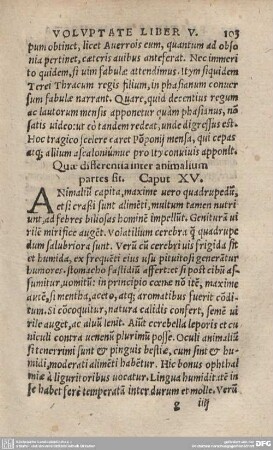 VOLVPTATE LIBER V. 103
pum obtinet, licet Auerrois eum, quantum ad obso
nia pertinet, cæteris auibus anteferat. Nec immeri
to quidem, si uim fabulæ attendimus. Itym siquidem
Terei Thracum regis filium, in phasianum conuer
sum fabulæ narrant. Quare, quid decentius regum
ac lautorum mensis apponetur quàm phasianus, nõ
satis uideo: ut eò tandem redeat, unde digressus est.
Hoc tragico scelere caret Põponij mensa, qui cepas
atq; allium ascaloniumue pro ity conuiuis apponit.
Quæ differentia inter animalium
partes sit. Caput XV.
ANimaliũ capita, maxime uero quadrupedũ,
etsi crassi sunt alimẽti, multum tamen nutri
unt, ad febres biliosas hominẽ impellũt. Genitura ui
rile mirifice augẽt. Volatilium cerebra q̃ quadrupe
dum salubriora sunt. Verũ cũ cerebri uis frigida sit
et humida, ex frequẽti eius usu pituitosi generãtur
humores. stomacho fastidiũ affert: et si post cibũ as-
sumitur, uomitũ: in principio cœnæ nõ itẽ, maxime
autẽ, si mentha, aceto, atq; aromatibus fuerit cõdi-
tum. Si cõcoquitur, natura calidis confert, semẽ ui
rile auget, ac aluũ lenit. Aiũt cerebella leporis et cu
niculi contra uenenũ plurimũ posse. Oculi animaliũ
si tenerrimi sunt & pinguis bestiæ, cum sint & hu-
midi, moderati alimẽti habẽtur. Hic bonus ophthal
miæ à liguritoribus uocatur. Lingua humiditatẽ in
se habet ferè temperatã inter durum et molle. Verũ
g iiij